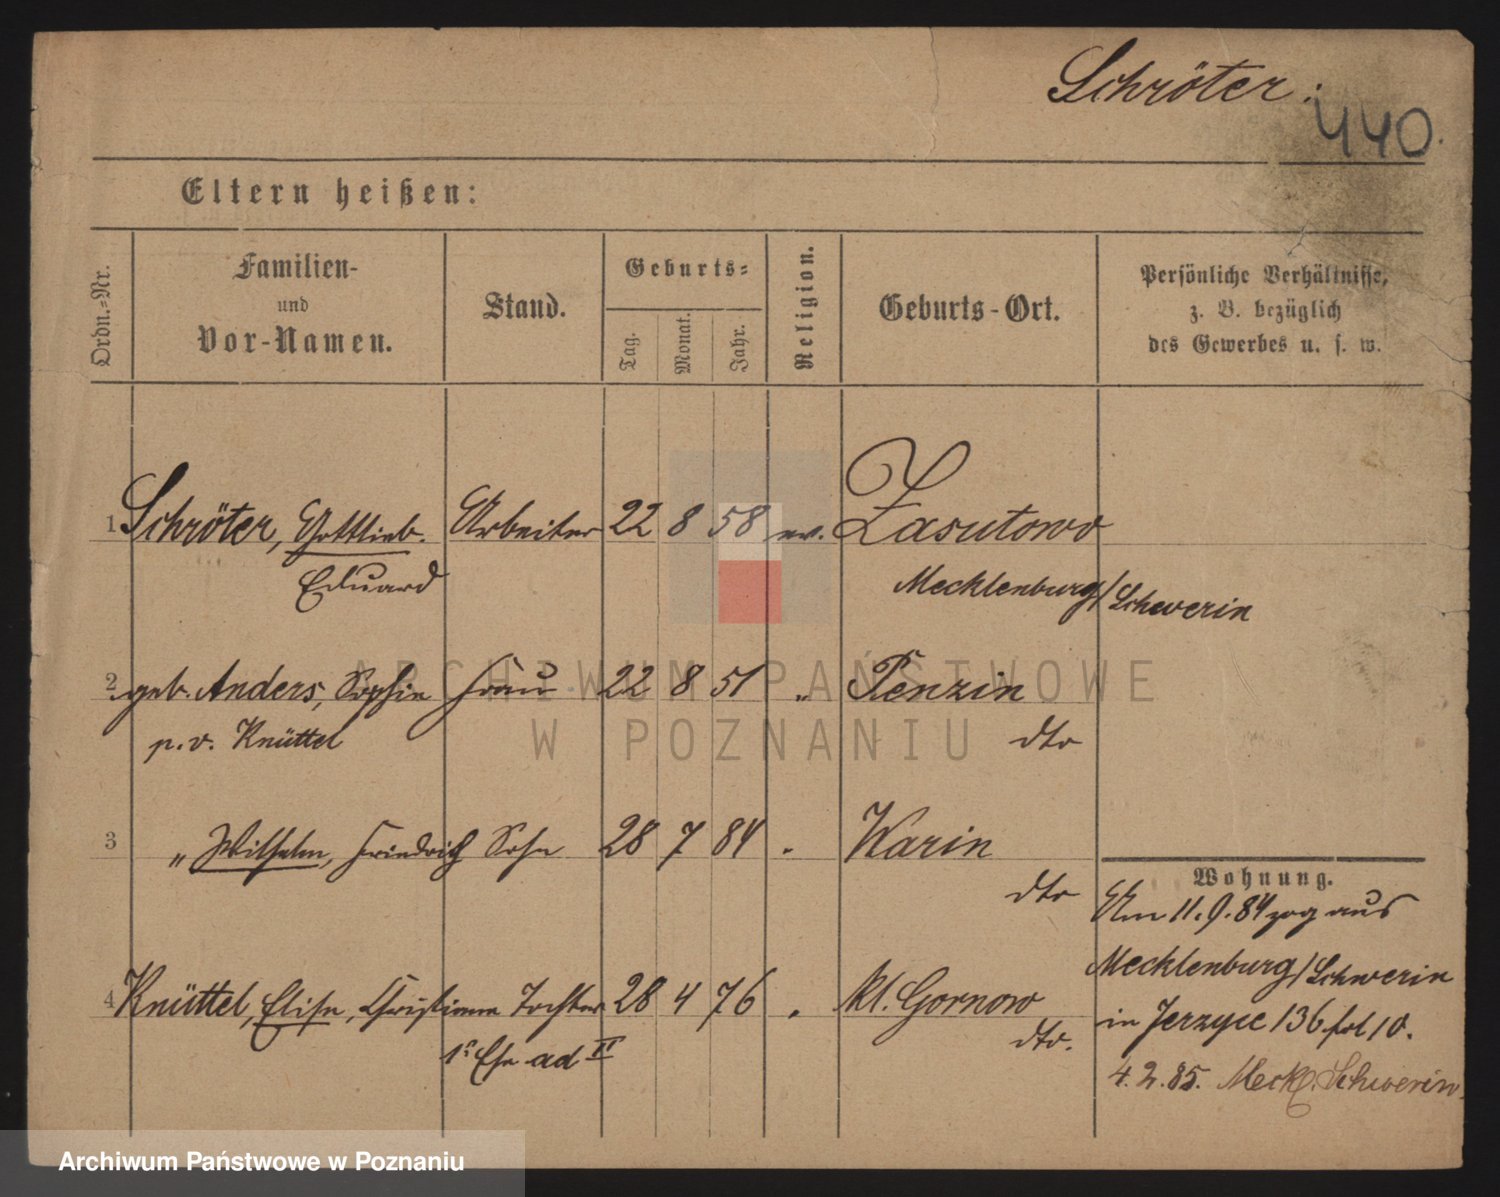 Schröter:
440.
Eltern heißen:
Ordn.-Nr.
Familien-
und
Vor-Namen.
Stand.
Geburts-
Tag.
Monat.
Jahr.
Religion.
Geburts-Ort.
Persönliche Verhältnisse,
z. B. bezüglich
des Gewerbes u. s. w.
1 Schröter, Gottlieb. Arbeiter 22 8 58 ev. Zasutowo
Eduard Mecklenburg/Schwerin
2 geb. Anders, Sophie Frau 22 8 51 " Penzin
p. v. Knüttel dto
3 " Wilhelm, Friedrich Sohn 28 7 84 " Warin
dto
4 Knüttel, Elise, Christiane Tochter 28 4 76 " Kl. Gornow
1r Ehe ad II dto.
Wohnung.
Am 11.9.84 zog aus
Mecklenburg/Schwerin
in Jerzyce 136 fol 10.
4.2.85. Meckl. Schwerin.
ARCHIWUM PAŃSTWOWE
W POZNANIU
Archiwum Państwowe w Poznaniu